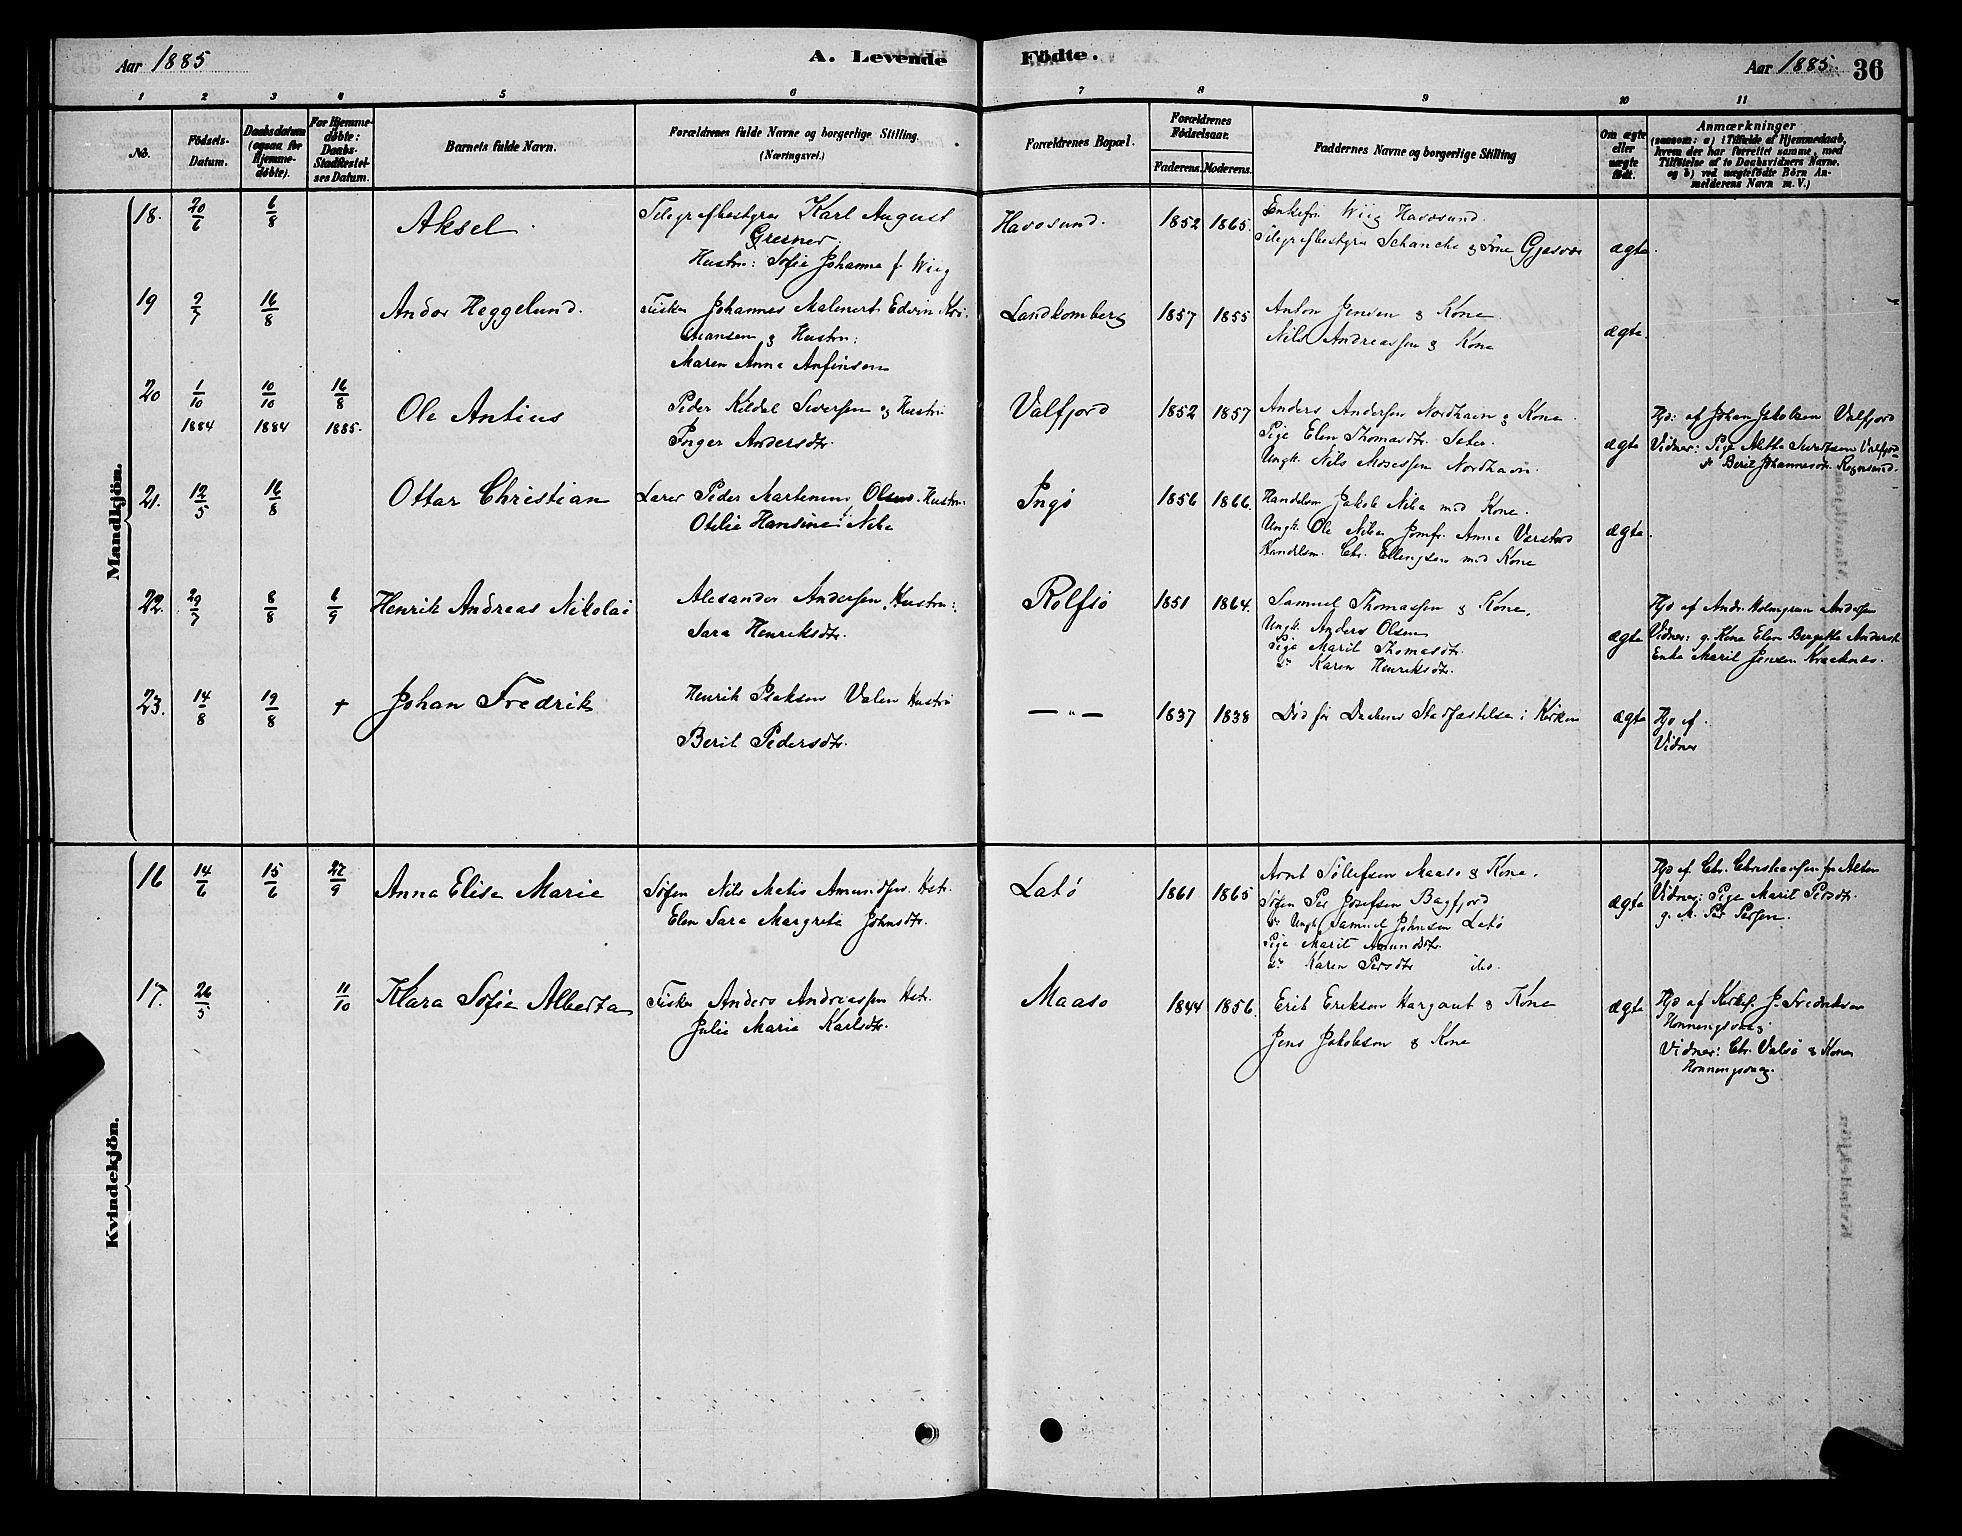 Aar 1885
A. Levende
Födte.
Aar 1885.
36
1 2 3 4 5 6 7 8 9 10 11
No.
Födsels-Datum.
Daabsdatum (ogsaa for Hjemmedøbte).
For Hjemmedøbte: Daabs-Stadfæstelses Datum.
Barnets fulde Navn.
Forældrenes fulde Navne og borgerlige Stilling.
(Næringsvei.)
Forældrenes Bopæl.
Forældrenes Födselsaar.
Faderens. Moderens.
Faddernes Navne og borgerlige Stilling
Om ægte eller uægte født.
Anmærkninger
(saasom: a) i Tilfælde af Hjemmedaab,
hvem der har forrettet samme, med
Tilföielse af to Daabsvidners Navne,
og b) ved uægtefödte Börn An-
melderens Navn m. V.)
Mandkjön.
18. 20/6 6/8 Aksel.
Telegrafbestyrer Karl August
Gresner.
Hustru: Sofie Johanna f. Wiig
Havosund. 1852 1865.
Enkefru Wiig Havosund.
Telegrafbestyrer Schanche & Frue Gjesvær
ægte.
19 2/7 16/8 Andor Heggelund.
Fisker Johannes Malenert Edvin Kri-
stiansen og Hustru:
Maren Anna Anfinsen
Landkomberg 1857 1855
Anton Jensen & Kone.
Nils Andreassen & Kone
ægte.
20 1/10 1884 10/10 1884 16/8 1885. Ole Antius
Peder Kildal Seversen og Hustru
Inger Andersdtr.
Valfjord 1852 1857
Anders Andersen Nordhavn & Kone.
Pige Elen Thomasdtr. Seter.
Ungk. Nils Mosessen Nordhavn.
ægte
Hjd: af Johan Jakobsen Valfjord
Vidner: Pige Mette Sivertsen Valfjord
Dr Berit Johannesdtr. Rognsund.
21. 12/5 16/8 Ottar Christian
Lærer Peder Martinius Olsen. Hustru:
Otilie Hansine f. Nibe
Ingö 1856 1866.
Handelsm Jakob Nibe med Kone.
Ungk. Ole Nibe Jomfr. Anna
Handelsm. Chr. Ellingsen med Kone
ægte.
22. 29/7 8/8 6/9 Henrik Andreas Nikolai
Alexander Andersen. Hustru:
Sara Henriksdtr.
Rolfsö 1851 1864.
Samuel Thomassen & Kone.
Ungk. Anders Olsen
Pige Marit Thomasdtr.
Dr Karen Henriksdtr.
ægte
Hjd af Andr. Holmgren Andersen
Vidner: g. Kone Elen Bergitte Andersdt
Enke Marit Jensen
23. 14/8 19/8 + Johan Fredrik
Henrik Isaksen Valen Hustru
Berit Pedersdtr.
— " — 1837 1838
Död för Daabens Stadfæstelse i Kirken
ægte
Hjd af.
Vidner
Kvindekjön.
16 14/6 15/6 27/9 Anna Elisa Marie
Søfin Nils Matis Amundsen. Hstr.
Elen Sara Margrete Johnsdtr.
Latö 1861 1865
Arnt Tollefsen Maasö & Kone.
Søfin Per Josefsen Bagfjord
Dr Ungk Samuel Johnsen Latö
Pige Marit Amundsdtr.
Dr Karen Persdtr ibd.
ægte
Hjd af Chr. Christiansen fra Alten
Vidner: Pige Marit Persdtr.
g. M. Per Persen.
17. 26/5 11/10 Klara Sofie Alberta
Fisker Anders Andreassen Hstr.
Julie Marie Karlsdtr.
Maasö 1844 1856.
Erik Eriksen Hargaut & Kone
Jens Jakobsen & Kone
ægte
Hjd af Kirkes. J. Fredriksen
Honningsvaag
Vidner: Chr. Valsö & Kone
Honningsvaag.